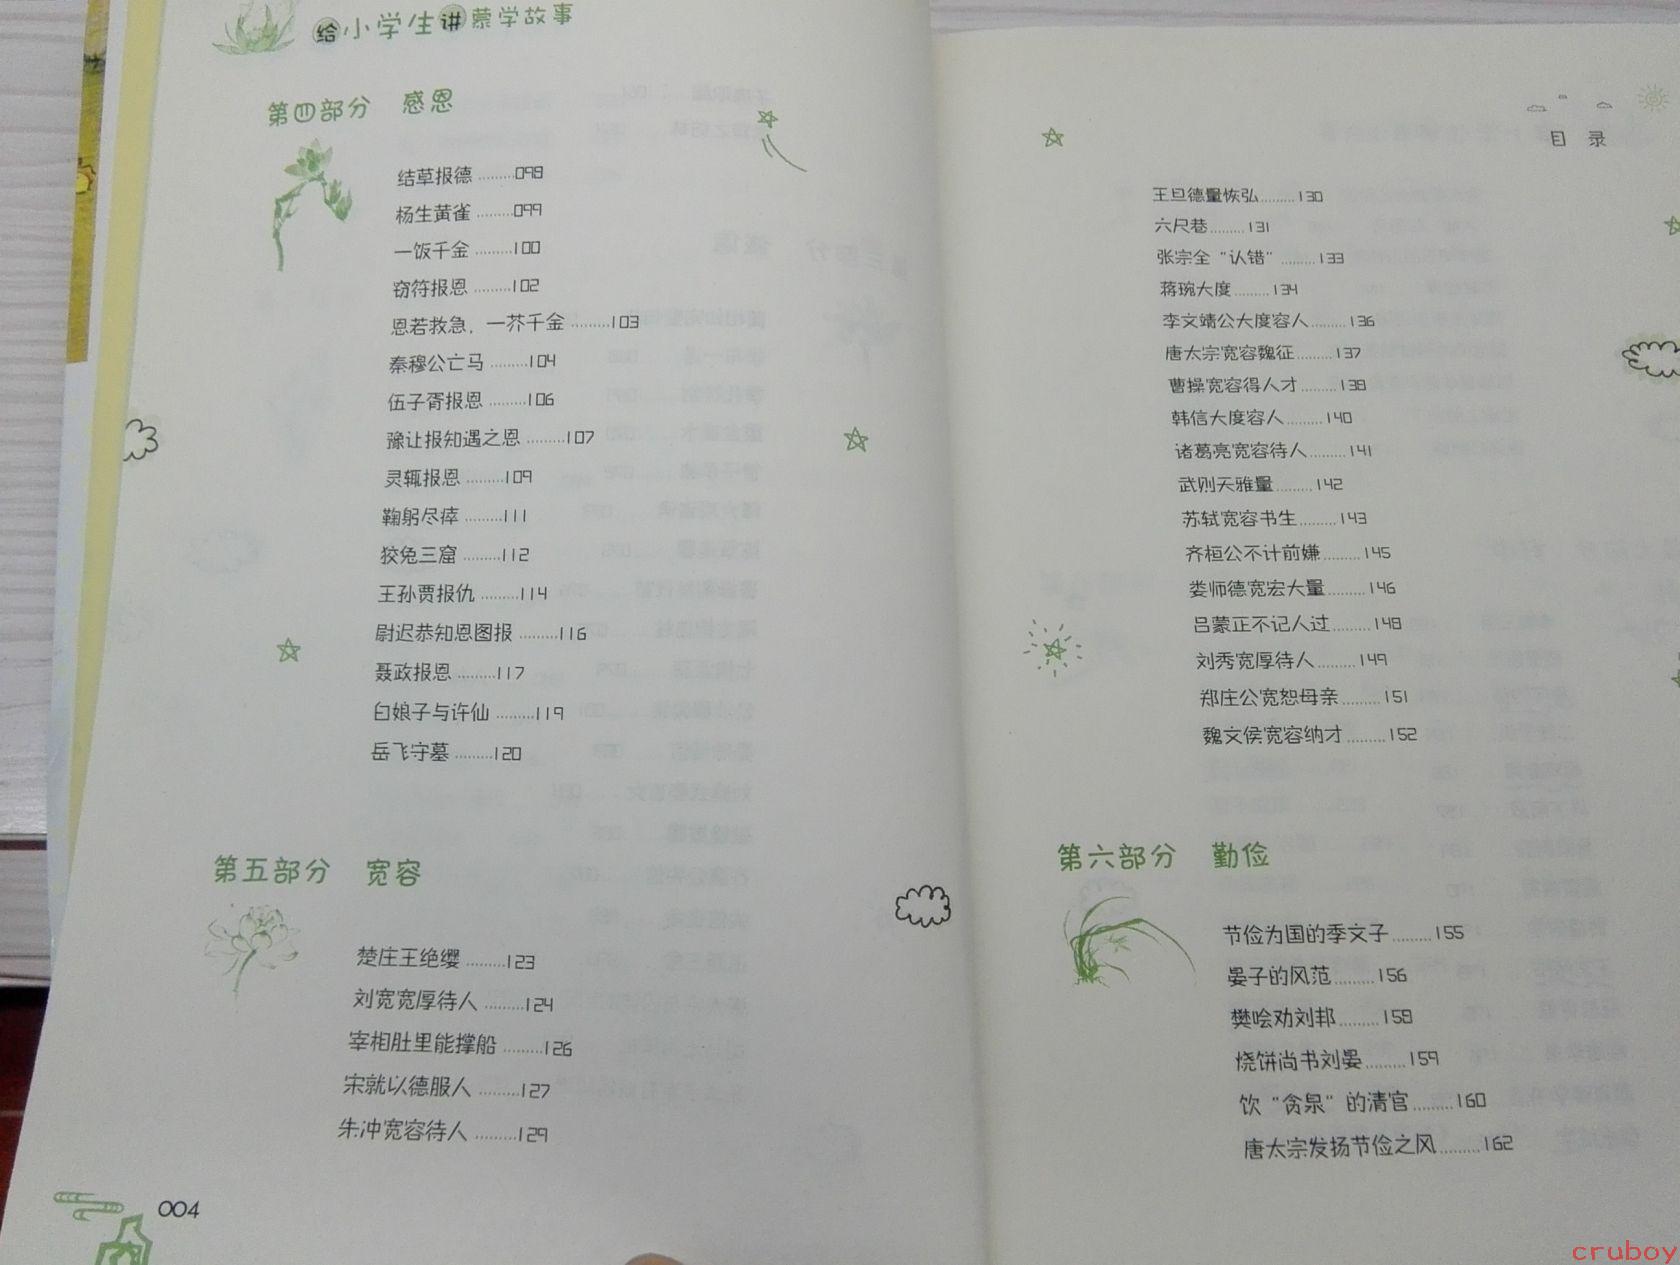 给小学生讲蒙学故事
第四部分 感恩
结草报德.........098
杨生黄雀.........099
一饭千金.........100
窃符报恩.........102
恩若救急，一芥千金.........103
秦穆公亡马.........104
伍子胥报恩.........106
豫让报知遇之恩.........107
灵辄报恩.........109
鞠躬尽瘁.........111
狡兔三窟.........112
王孙贾报仇.........114
尉迟恭知恩图报.........116
聂政报恩.........117
白娘子与许仙.........119
岳飞守墓.........120
第五部分 宽容
楚庄王绝缨.........123
刘宽宽厚待人.........124
宰相肚里能撑船.........126
宋就以德服人.........127
朱冲宽容待人.........129
004
目 录
王旦德量恢弘.........130
六尺巷.........131
张宗全“认错”.........133
蒋琬大度.........134
李文靖公大度容人.........136
唐太宗宽容魏征.........137
曹操宽容得人才.........138
韩信大度容人.........140
诸葛亮宽容待人.........141
武则天雅量.........142
苏轼宽容书生.........143
齐桓公不计前嫌.........145
娄师德宽宏大量.........146
吕蒙正不记人过.........148
刘秀宽厚待人.........149
郑庄公宽恕母亲.........151
魏文侯宽容纳才.........152
第六部分 勤俭
节俭为国的季文子.........155
晏子的风范.........156
樊哙劝刘邦.........158
烧饼尚书刘晏.........159
饮“贪泉”的清官.........160
唐太宗发扬节俭之风.........162
cruboy